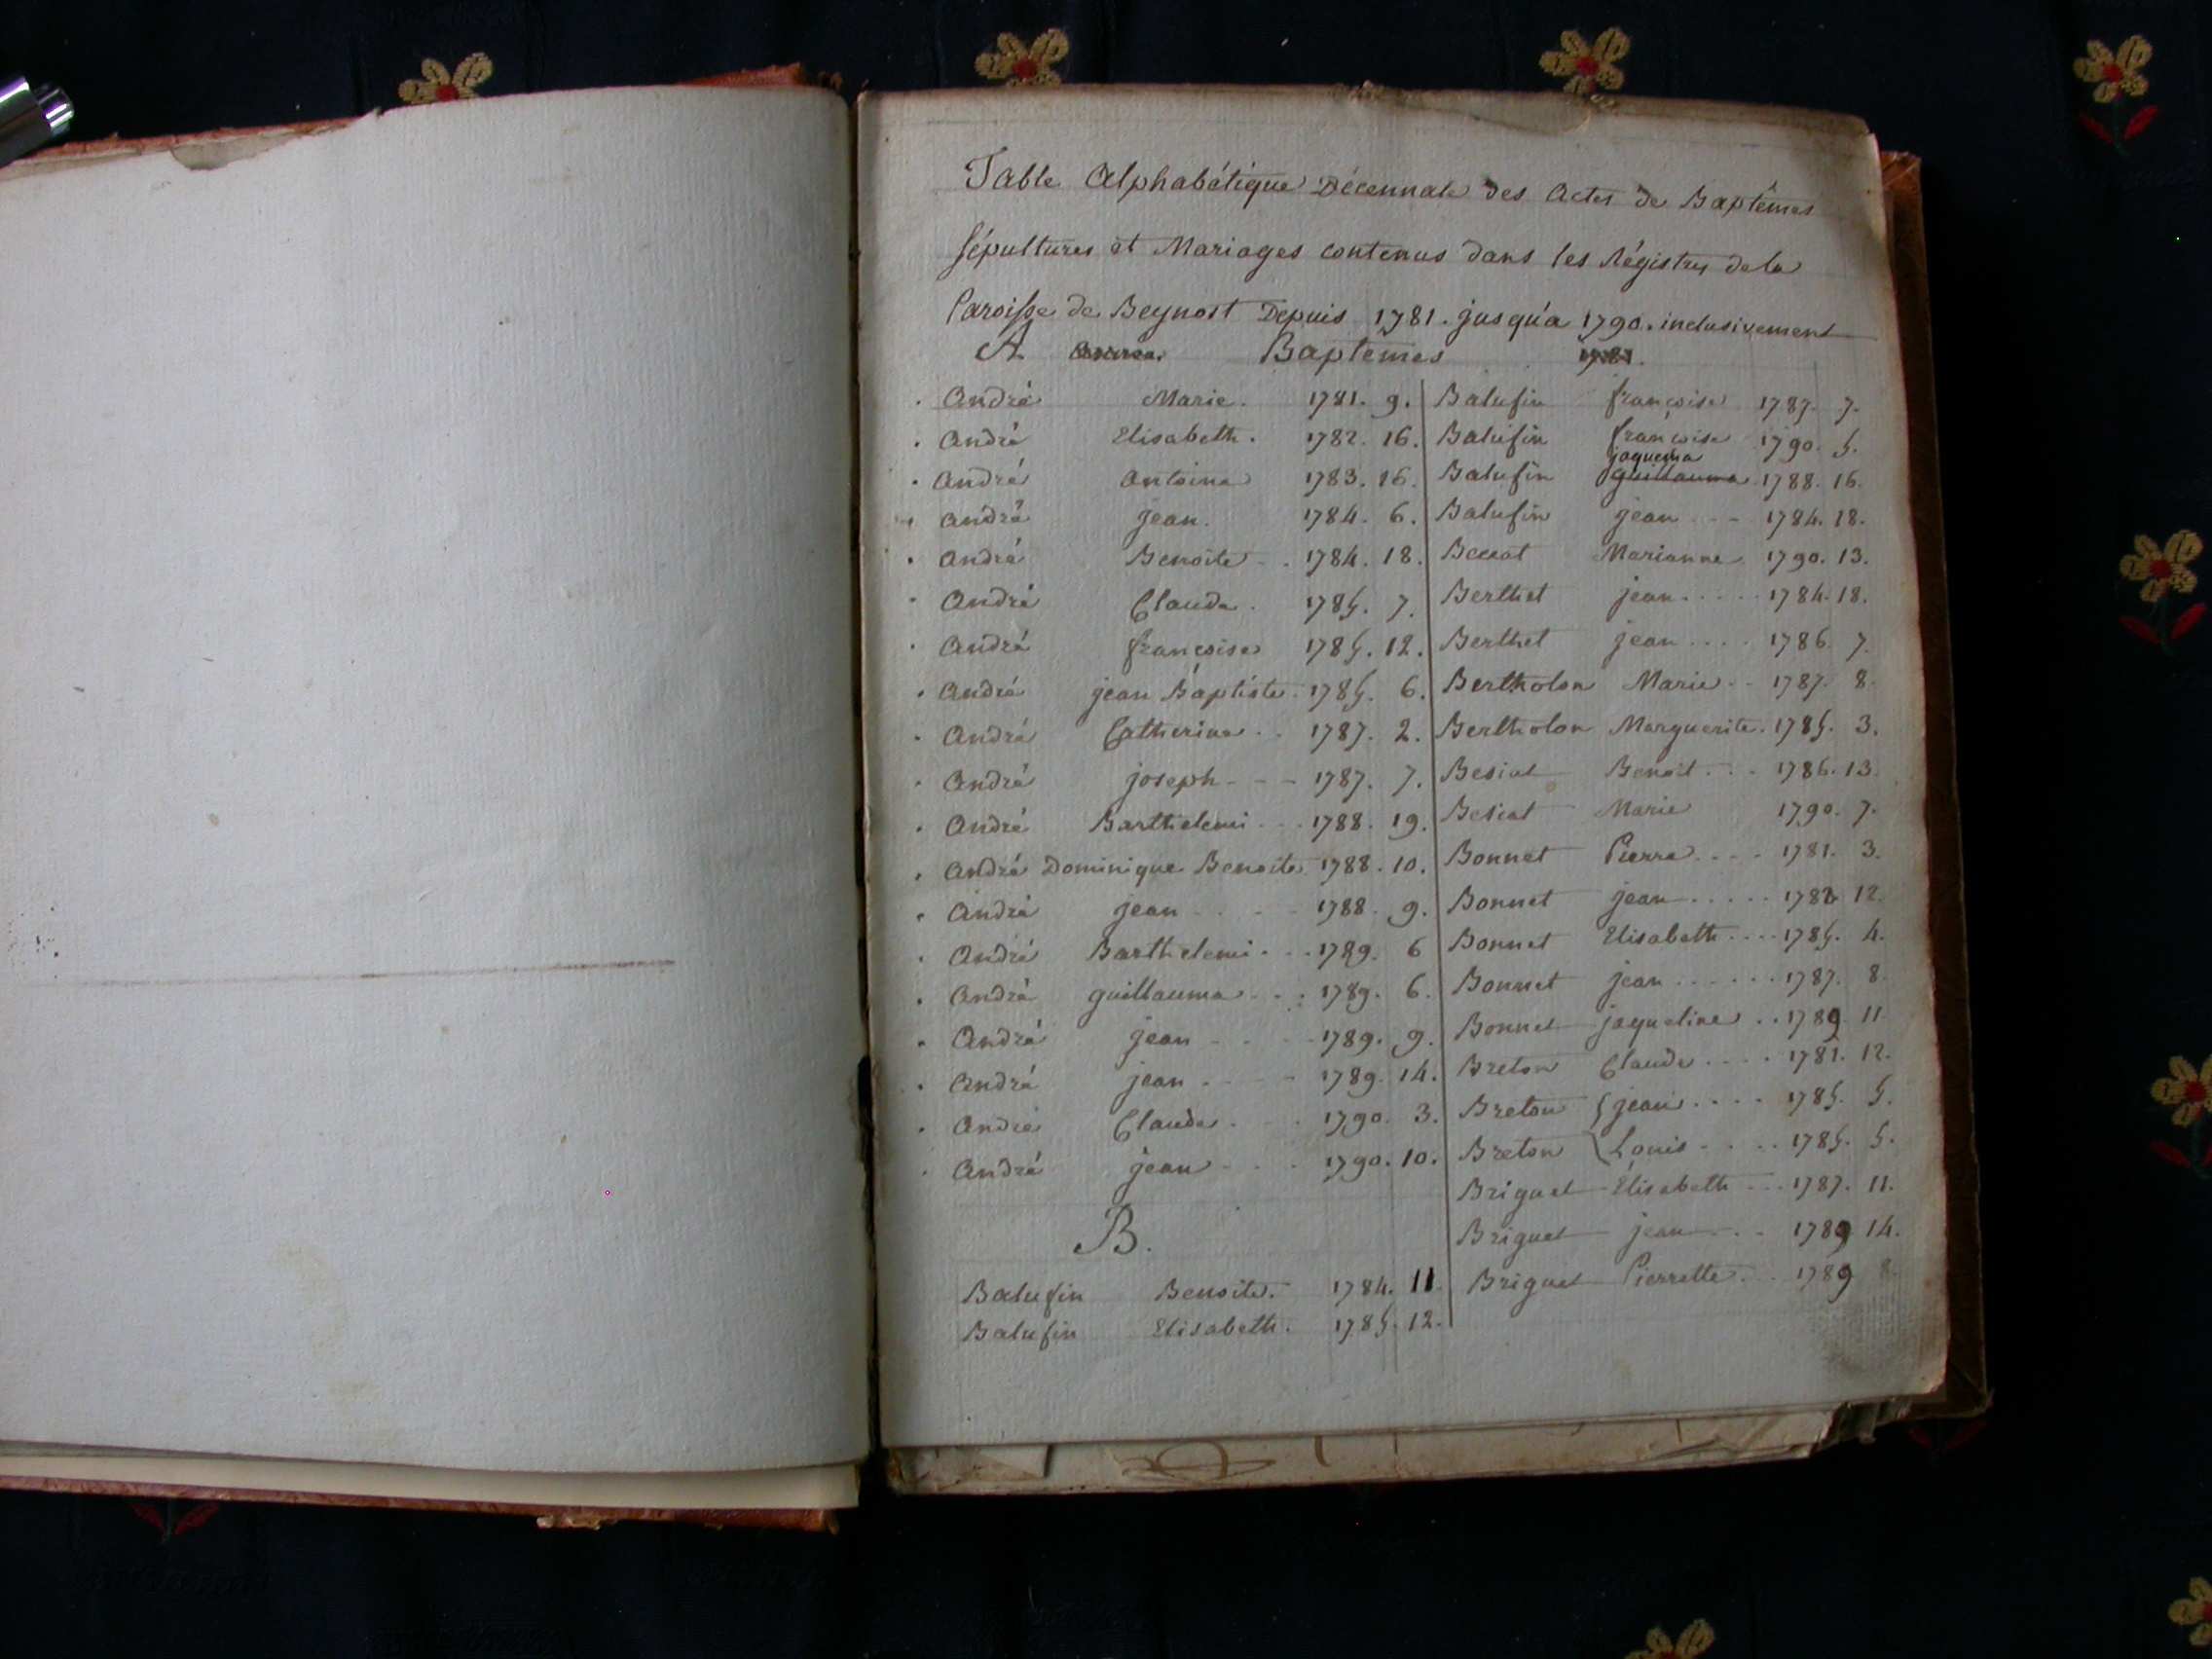 Table Alphabétique Décennale des Actes de Baptêmes
Sépultures et Mariages contenus dans les Régistres de la
Paroisse de Beynost Depuis 1781. jusqu'a 1790. inclusivement
A Baptêmes
André Marie. 1781. 9.
André Elisabeth. 1782. 16.
André Antoine 1783. 16.
André jean. 1784. 6.
André Benoite 1784. 18.
André Claude. 1785. 7.
André françoise 1785. 12.
André jean Baptiste. 1785. 6.
André Catherine 1787. 2.
André joseph 1787. 7.
André Barthelemi 1788. 19.
André Dominique Benoite 1788. 10.
André jean 1788. 9.
André Barthelemi 1789. 6
André guillaume 1789. 6.
André jean 1789. 9.
André jean 1789. 14.
André Claude 1790. 3.
André jean 1790. 10.
B.
Balufin Benoite. 1784. 11.
Balufin Elisabeth. 1785. 12.
Balufin françoise 1787. 7.
Balufin françoise 1790. 5.
jaquema
Balufin guillauma 1788. 16.
Balufin jean 1784. 18.
Beccat Marianne 1790. 13.
Berthet jean 1784. 18.
Berthet jean 1786 7.
Bertholon Marie 1787. 8.
Bertholon Marguerite. 1785. 3.
Besiat Benoit 1786. 13.
Besiat Marie 1790. 7.
Bonnet Pierre 1781. 3.
Bonnet jean 12.
Bonnet Elisabeth 1785. 4.
Bonnet jean 1787. 8
Bonnet jaqueline 1789 11
Breton Claude 1781. 12.
Breton { jean 1785. 5.
Breton { Louis 1785. 5.
Briguet Elisabeth 1787. 11.
Briguet jean 1789 14.
Briguet Pierrette 1789 8.